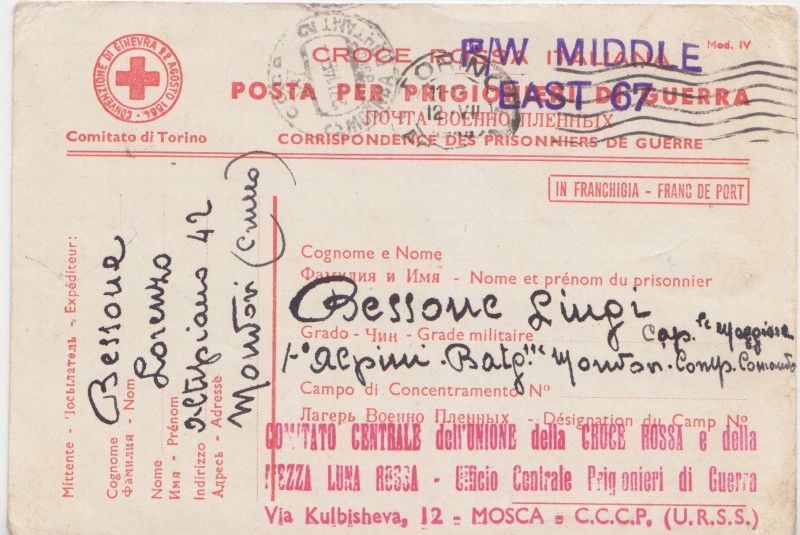 CONVENZIONE DI GINEVRA 22 AGOSTO 1864
Comitato di Torino
CROCE ROSSA ITALIANA
Mod. IV
P/W MIDDLE
EAST 67
POSTA PER PRIGIONIERI DI GUERRA
ПОЧТА ВОЕННО ПЛЕННЫХ
CORRESPONDENCE DES PRISONNIERS DE GUERRE
12 VII
IN FRANCHIGIA - FRANC DE PORT
Mittente - Посылатель - Expéditeur:
Bessone
Cognome
Фамилия - Nom
Lorenzo
Nome
Имя - Prénom
Altipiano 42
Indirizzo
Адресь - Adresse
Mondovi (Cuneo)
Cognome e Nome
Фамилия и Имя - Nome et prénom du prisonnier
Bessone Luigi
Grado - Чин - Grade militaire
Cap.le Maggiore
1º Alpini - Batg. Mondovi - Comp. Comando
Campo di Concentramento Nº
Лагерь Военно Пленных - Désignation du Camp Nº
COMITATO CENTRALE dell'UNIONE della CROCE ROSSA e della
MEZZA LUNA ROSSA - Ufficio Centrale Prigionieri di Guerra
Via Kulbisheva, 12 - MOSCA - C.C.C.P. (U.R.S.S.)